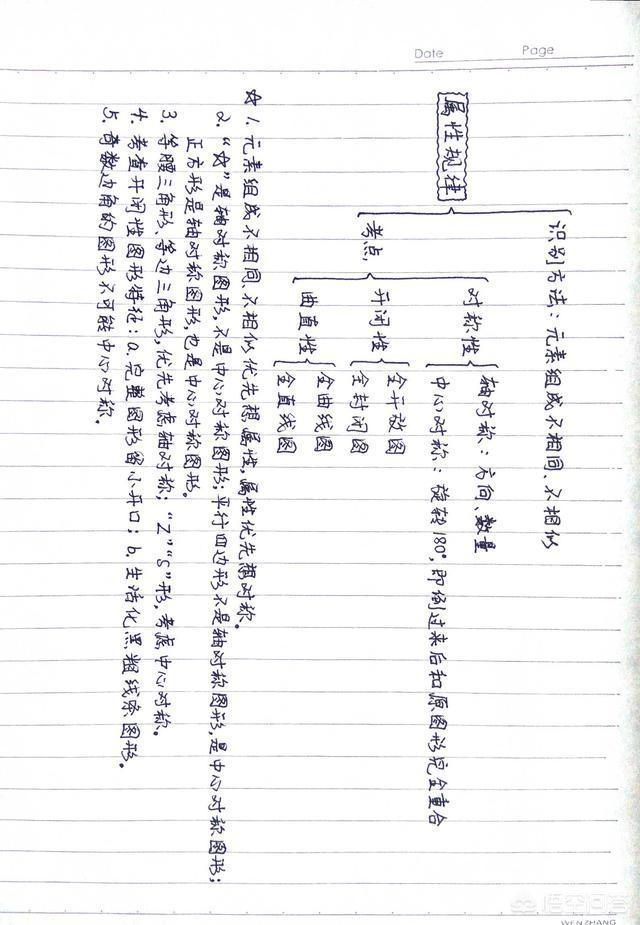 Date Page
属性规律
识别方法：元素组成不相同、不相似
考点
对称性
轴对称：方向、数量
中心对称：旋转180°，即倒过来后和原图形完全重合
开闭性
全开放图
全封闭图
曲直性
全曲线图
全直线图
☆ 1. 元素组成不相同、不相似优先想属性，属性优先想对称。
2. “☆”是轴对称图形，不是中心对称图形；平行四边形不是轴对称图形，是中心对称图形；
正方形是轴对称图形，也是中心对称图形。
3. 等腰三角形、等边三角形，优先考虑轴对称；“Z”“S”形，考虑中心对称。
4. 考查开闭性图形特征：a. 完整图形留小开口；b. 生活化黑粗线条图形。
5. 奇数边角的图形不可能中心对称。
悟空问答
WENZHANG